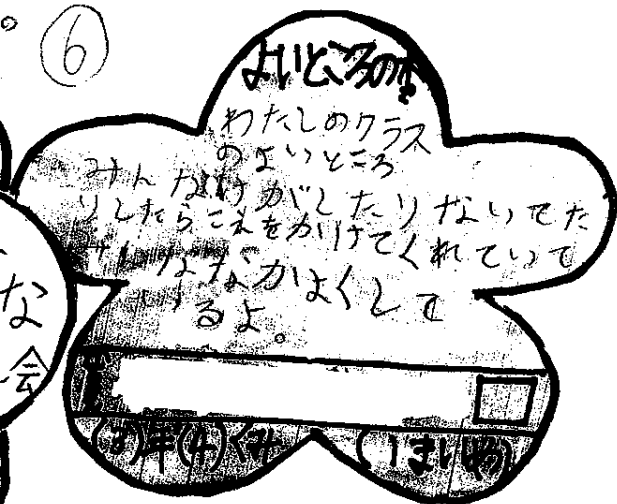 ⑥
よいところの木
わたしのクラス
のよいところ
みんなけがしたりないてた
りしたらこえをかけてくれていて
みんななかよくして
るよ。
な
会
年 くみ